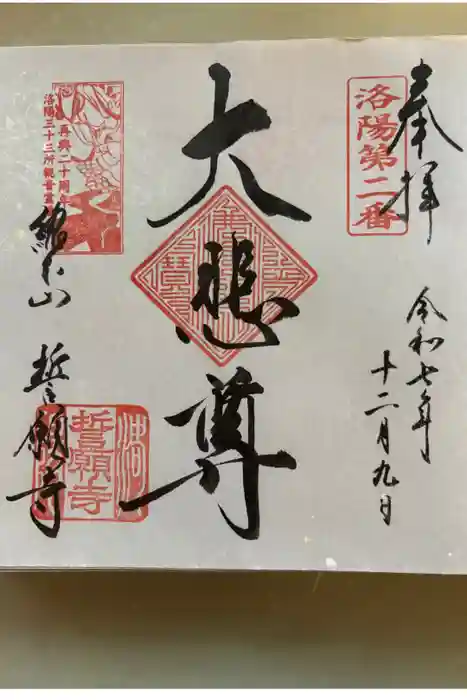 奉拝
洛陽第二番
令和七年
十二月九日
大悲尊
再興二十周年
洛陽三十三所観音霊
山
誓願寺
誓願寺